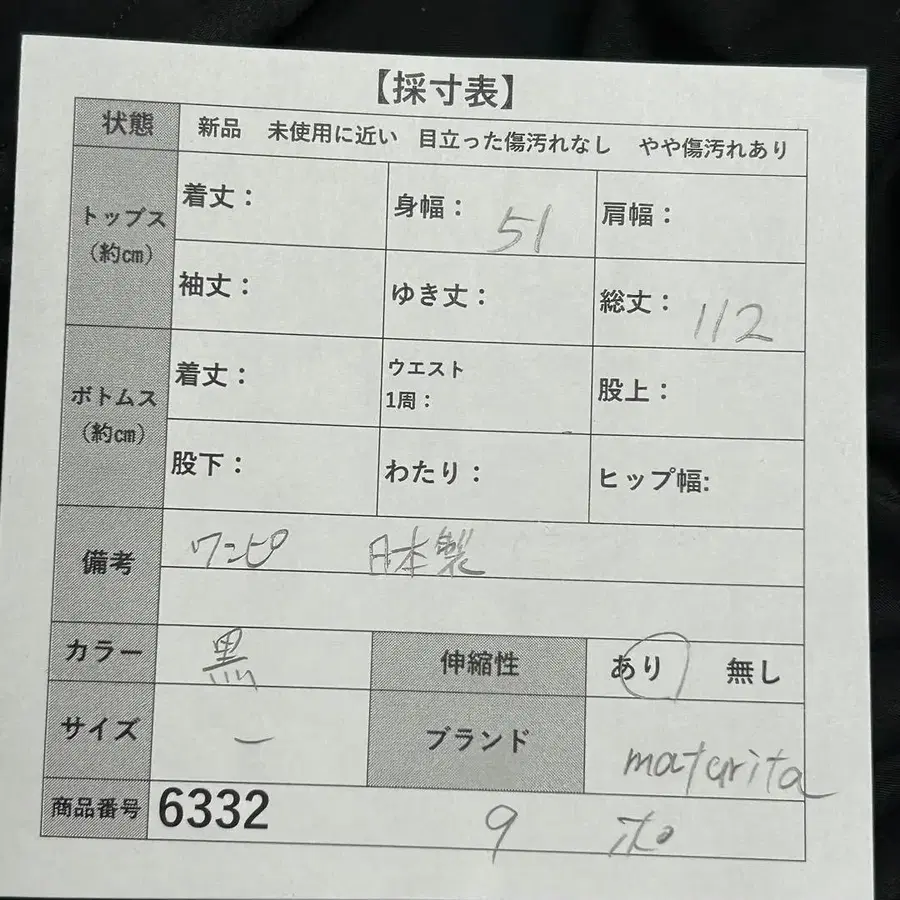 【採寸表】
状態 新品 未使用に近い 目立った傷汚れなし やや傷汚れあり
トップス（約㎝） 着丈： 身幅： 51 肩幅：
袖丈： ゆき丈： 総丈： 112
ボトムス（約㎝） 着丈： ウエスト1周： 股上：
股下： わたり： ヒップ幅:
備考 ワンピ 日本製
カラー 黒 伸縮性 あり 無し
サイズ ー ブランド maturita
商品番号 6332 9 ポ